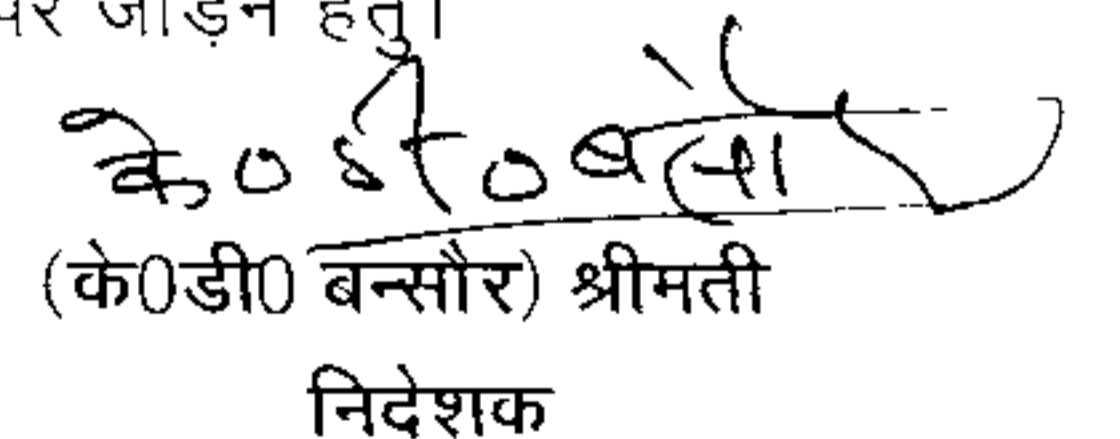 पर जोड़ने हेतु।
के0डी0 बन्सौर
(के0डी0 बन्सौर) श्रीमती
निदेशक